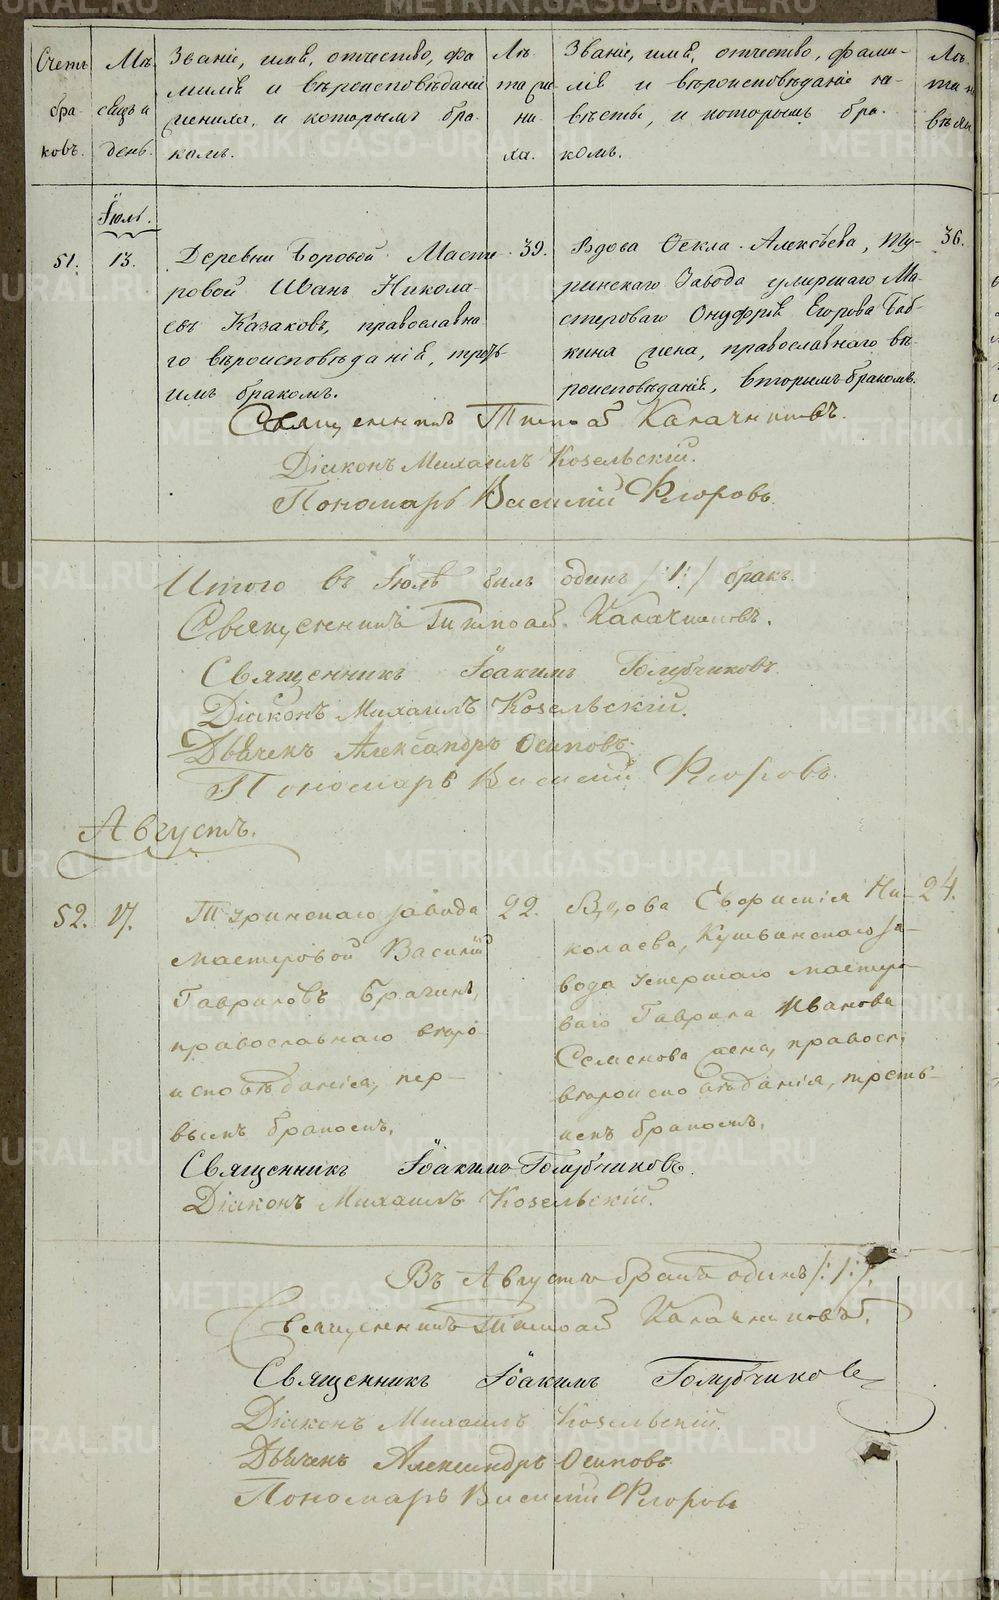 Счетъ бра- ковъ.
Мѣ- сяцъ и день.
Званіе, имя, отчество, фа-
милія и вѣроисповѣданіе
жениха, и которымъ бра-
комъ.
Лѣ- та же- ни- ха.
Званіе, имя, отчество, фами-
лія и вѣроисповѣданіе не-
вѣсты, и которымъ бра-
комъ.
Лѣ- та не- вѣсты
Іюль.
51. 13.
Деревни Боровой Масте
ровой Иванъ Никола-
евъ Казаковъ, православна
го вѣроисповѣданія, треть-
имъ бракомъ.
39.
Вдова Фекла Алексѣева, Ту-
ринскаго Завода умершаго Ма-
стероваго Онуфрія Егорова Баб-
кина жена, православнаго вѣ-
роисповѣданія, вторымъ бракомъ.
36.
Священникъ Тимофей Калачниковъ.
Діаконъ Михаилъ Козельскій.
Пономарь Василій Флоровъ.
Итого въ Іюлѣ былъ одинъ /:1:/ бракъ.
Священникъ Тимофей Калачниковъ.
Священникъ Іоакимъ Голубчиковъ.
Діаконъ Михаилъ Козельскій.
Дьячекъ Александръ Осиповъ.
Пономарь Василій Флоровъ.
Августъ.
52. 17.
Туринскаго завода
мастеровой Василій
Гавриловъ
православнаго вѣро
исповѣданія, пер-
вымъ бракомъ.
22.
Вдова Евфимія Ни-
колаева, Кушвинскаго за-
вода умершаго мастеро-
ваго Гаврила Иванова
Семенова жена, правосл.
вѣроисповѣданія, треть-
имъ бракомъ.
24.
Священникъ Іоакимъ Голубчиковъ.
Діаконъ Михаилъ Козельскій.
Въ Августѣ бракъ одинъ /:1:/.
Священникъ Тимофей Калачниковъ.
Священникъ Іоакимъ Голубчиковъ
Діаконъ Михаилъ Козельскій.
Дьячекъ Александръ Осиповъ
Пономарь Василій Флоровъ
METRIKI.GASO-URAL.RU